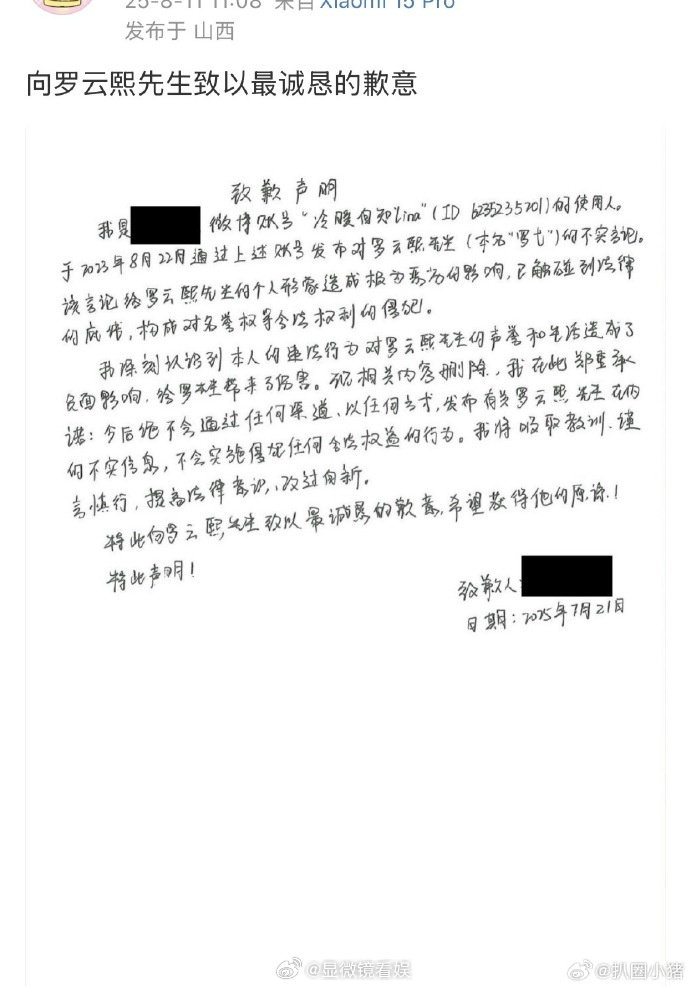 25-8-11 11:08 来自 Xiaomi 15 Pro
发布于 山西
向罗云熙先生致以最诚恳的歉意
致歉声明
我是 微博账号“冷暖自知lina”(ID 6235235201)的使用人。
于2023年8月22日通过上述账号发布对罗云熙先生(本名“罗弋”)的不实言论。
该言论给罗云熙先生的个人形象造成极为恶劣的影响,已触碰到法律
的底线,构成对名誉权等合法权利的侵犯。
我深刻认识到本人的违法行为对罗云熙先生的声誉和生活造成了
负面影响,给罗先生带来了伤害。现相关内容删除,我在此郑重承
诺:今后绝不会通过任何渠道、以任何方式,发布有关罗云熙先生在内
的不实信息,不会实施侵犯任何合法权益的行为。我将吸取教训、谨
言慎行,提高法律意识、改过自新。
特此向罗云熙先生致以最诚恳的歉意,希望获得他的原谅!
特此声明!
致歉人:
日期:2025年7月21日
@显微镜看娱
@扒圈小猪